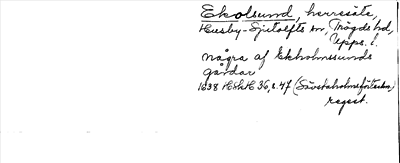 Ekolsund, herresäte,
Husby-Sjutolfts sn, Trögds hd,
Upps. l.
några af Ekholmssunds
gårdar
1638 HSH 36, s. 47 (Säfstaholmsförteckn.)
regest.